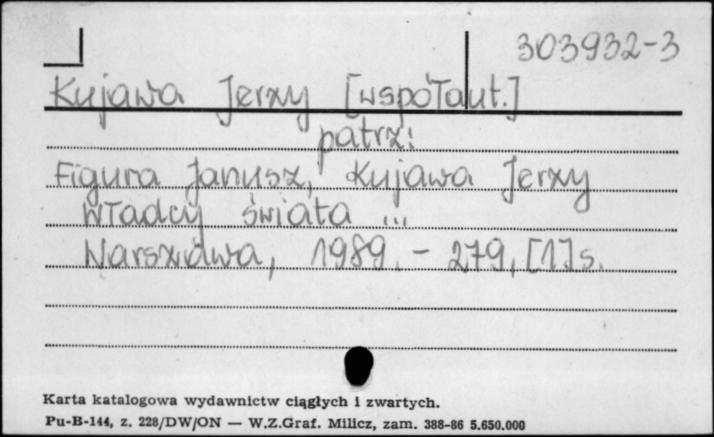 303932-3
Kujawa Jerzy [współaut.]
patrz:
Figura Janusz, Kujawa Jerzy
Władcy świata ...
Warszawa, 1989. - 279, [1] s.
Karta katalogowa wydawnictw ciągłych i zwartych.
Pu-B-144, z. 228/DW/ON — W.Z.Graf. Milicz, zam. 388-86 5.650.000